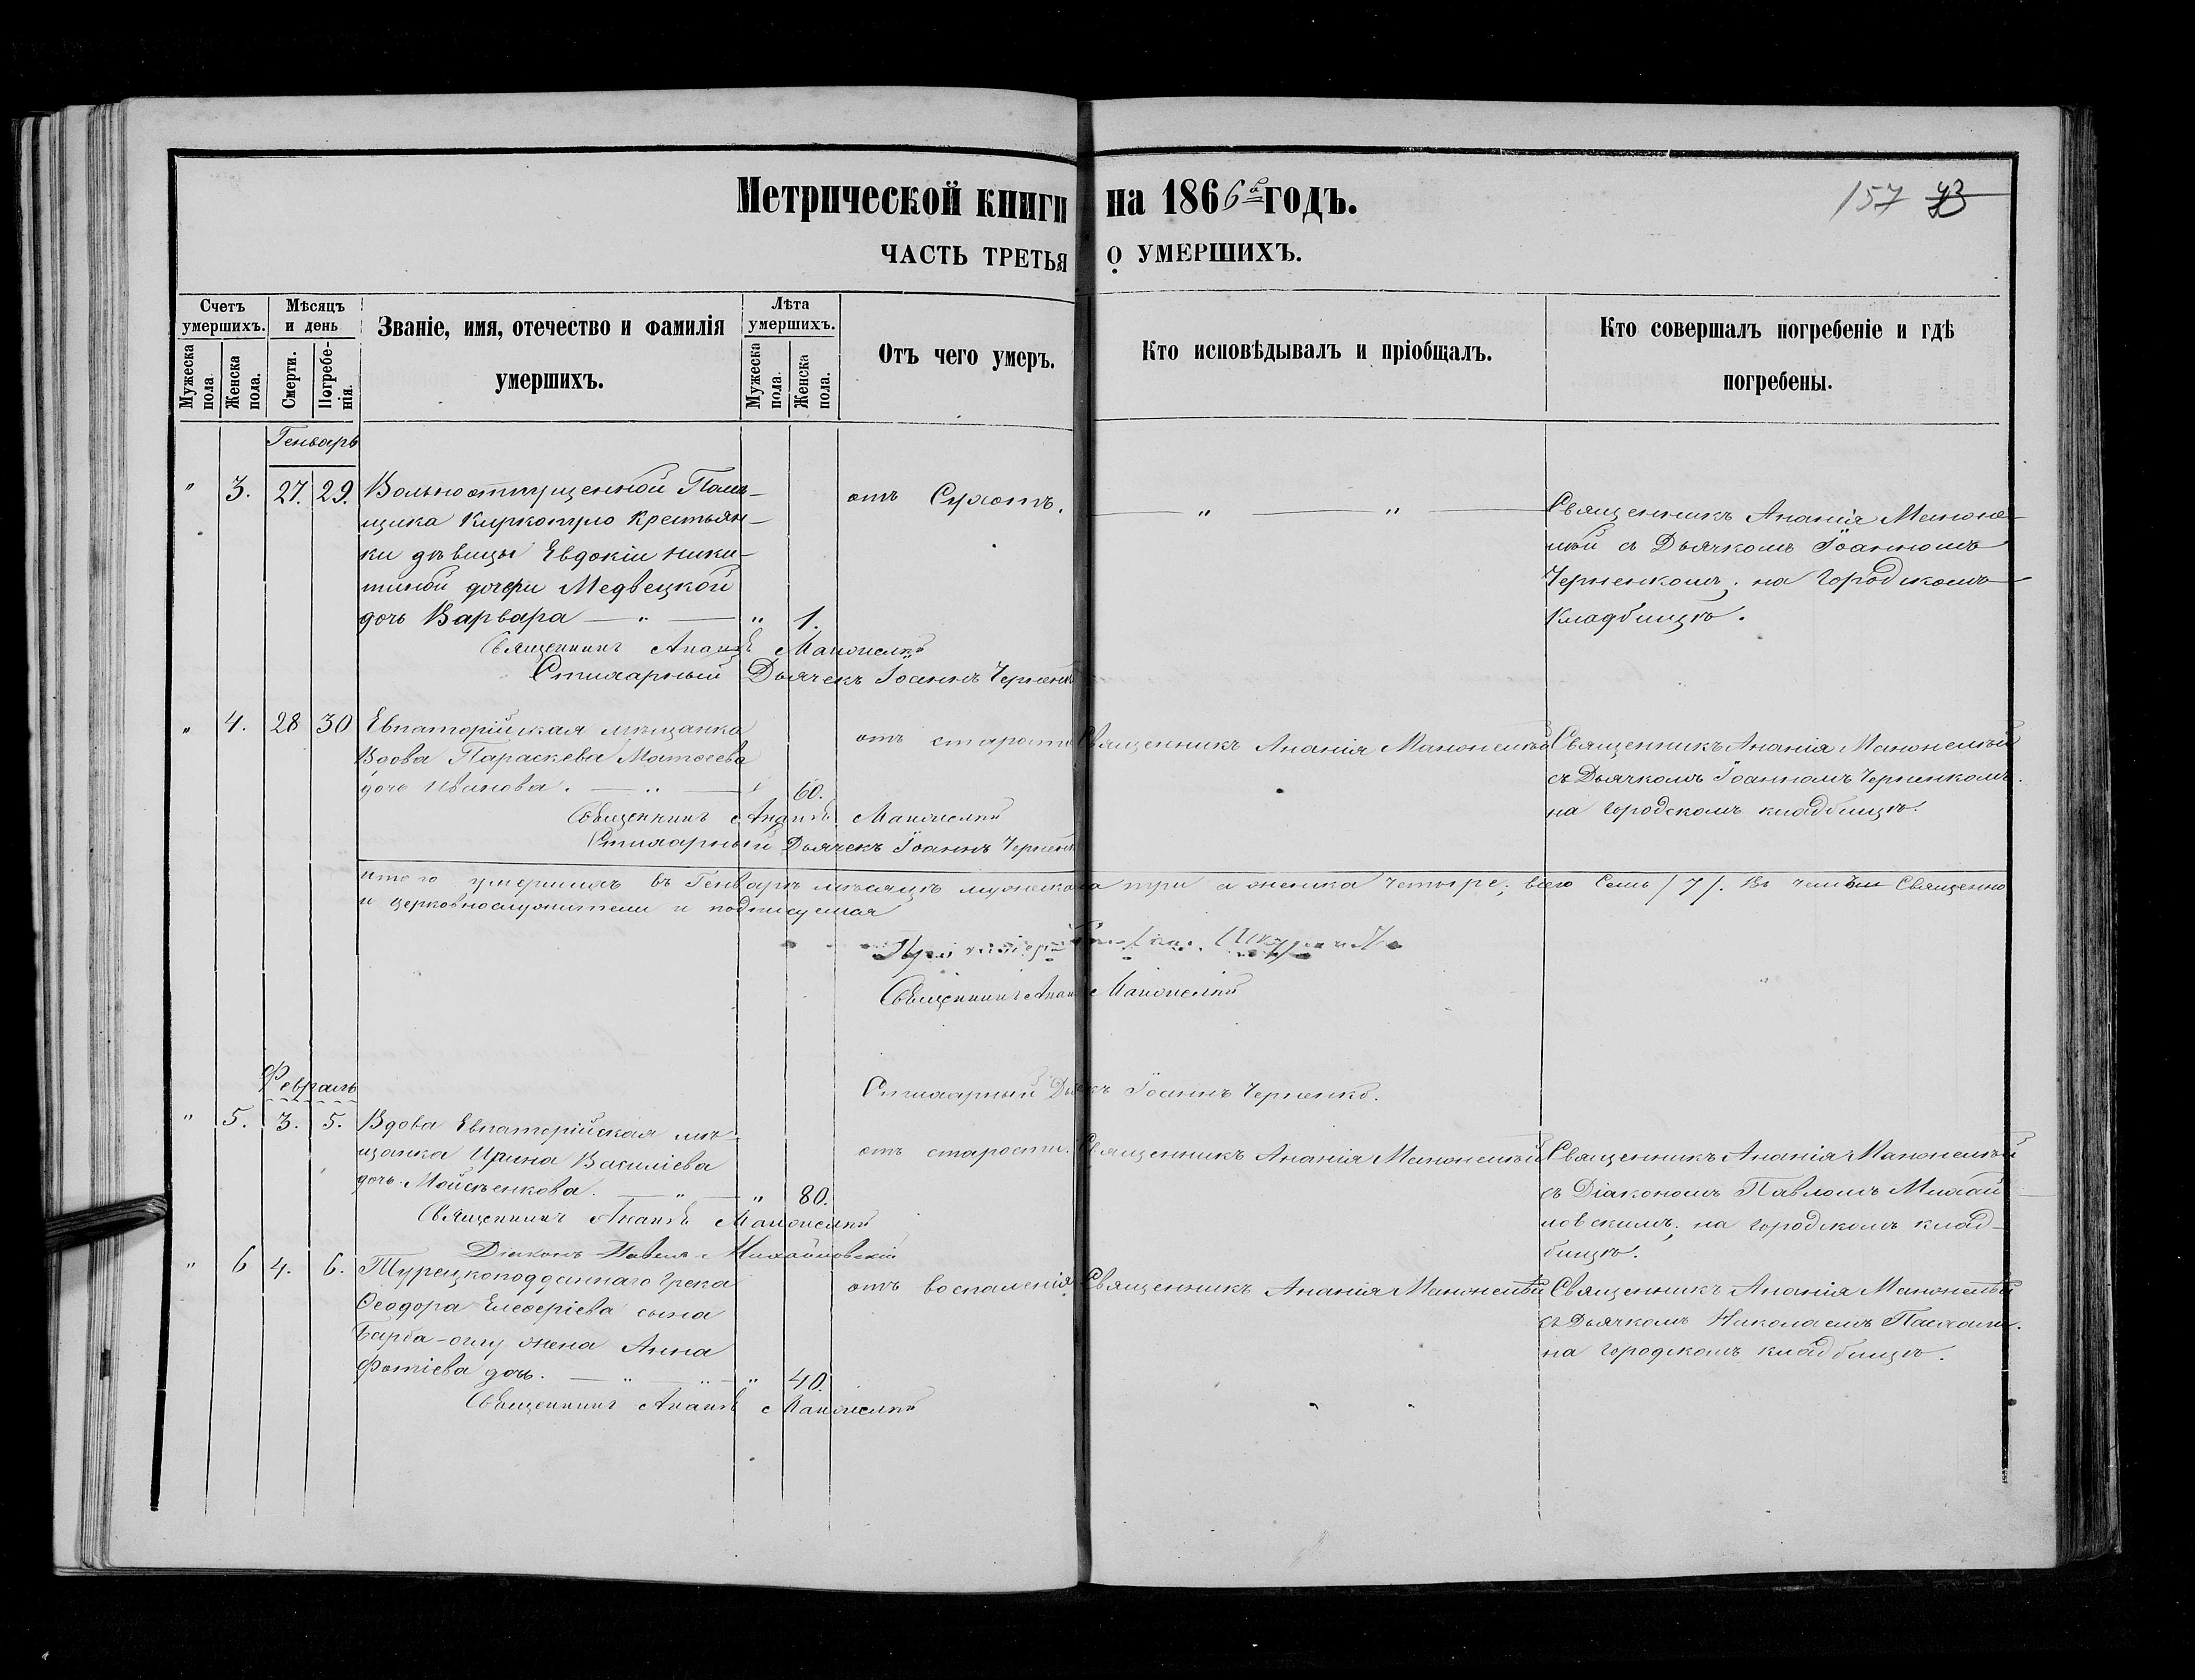 Метрической книги на 1866й годъ.
157 43
ЧАСТЬ ТРЕТЬЯ О УМЕРШИХЪ.
Счетъ умершихъ.
Мужеска пола.
Женска пола.
Мѣсяцъ и день
Смерти.
Погребенія.
Званіе, имя, отечество и фамилія умершихъ.
Лѣта умершихъ.
Мужеска пола.
Женска пола.
Отъ чего умеръ.
Кто исповѣдывалъ и пріобщалъ.
Кто совершалъ погребеніе и гдѣ погребены.
Генварь
" 3. 27. 29.
Вольноотпущенной Помѣ-
щика Киркотуло Крестьян-
ки дѣвицы Евдокіи Ники-
тиной дочери Медвецкой
дочь Варвара — " — " 1.
отъ Сухотъ.
— " — " —
Священникъ Ананія Маноне-
лкій съ Дьячкомъ Іоанномъ
Черненкомъ; на Городскомъ
Кладбищѣ.
Священникъ Ананія
Стихарный Дьячекъ Іоаннъ Черненко
" 4. 28 30
Евпаторійская мѣщанка
Вдова Параскева Матѳеева
дочь Иванова. — " — " 60.
отъ старости
Священникъ Ананія
Священникъ Ананія
съ Дьячкомъ Іоанномъ Черненкомъ.
на городскомъ кладбищѣ.
Священникъ Ананія
Стихарный Дьячекъ Іоаннъ Черненко
итого умершихъ въ Генварѣ мѣсяцѣ мужеска три а женска четыре; всего Семь /7/. Въ чемъ Священно
и церковнослужители и подписуемся
Священникъ Ананія
Стихарный Дьячекъ Іоаннъ Черненко.
Февраль
" 5. 3. 5.
Вдова Евпаторійская мѣ-
щанка Ирина Василіева
дочь Мойсѣенкова. — " — " 80.
отъ старости.
Священникъ Ананія
Священникъ Ананія
съ Діакономъ Павломъ Михай
ловскимъ; на городскомъ клад-
бищѣ.
Священникъ Ананія
Діаконъ Павелъ Михайловскій
" 6 4. 6.
Турецкоподданнаго Грека
Ѳеодора Елеѳеріева сына
Барба-оглу жена Анна
Фотіева дочь. — " — " — " 40.
отъ воспаленія.
Священникъ Ананія
Священникъ Ананія
съ Дьячкомъ Николаемъ
на городскомъ кладбищѣ.
Священникъ Ананія